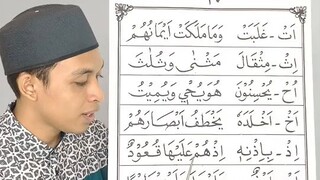 اَتْ - غَلَبَتْ وَمَا مَلَكَتْ اَيْمَانُهُمْ
اِثْ - مِثْقَالَ مَثْنٰى وَثُلٰثَ
اُحْ - يُحْسِنُوْنَ هُوَ يُحْيِ وَيُمِيْتُ
اَخْ - اَخْلَدَهٗ يَخْطَفُ اَبْصَارَهُمْ
اِذْ - بِاِذْنِهٖ اِذْهُمْ عَلَيْهَا قُعُوْدٌ